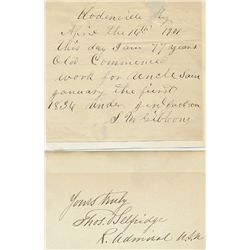 Hodenville Ky
Apri the 16th 1901
this day I am 77 years
Old Commenced
work for Uncle Sam
January the first
1834 under Gen Jackson
J M Gibbons
Yours truly
Thos. O Selfridge
R. Admiral U.S.N.